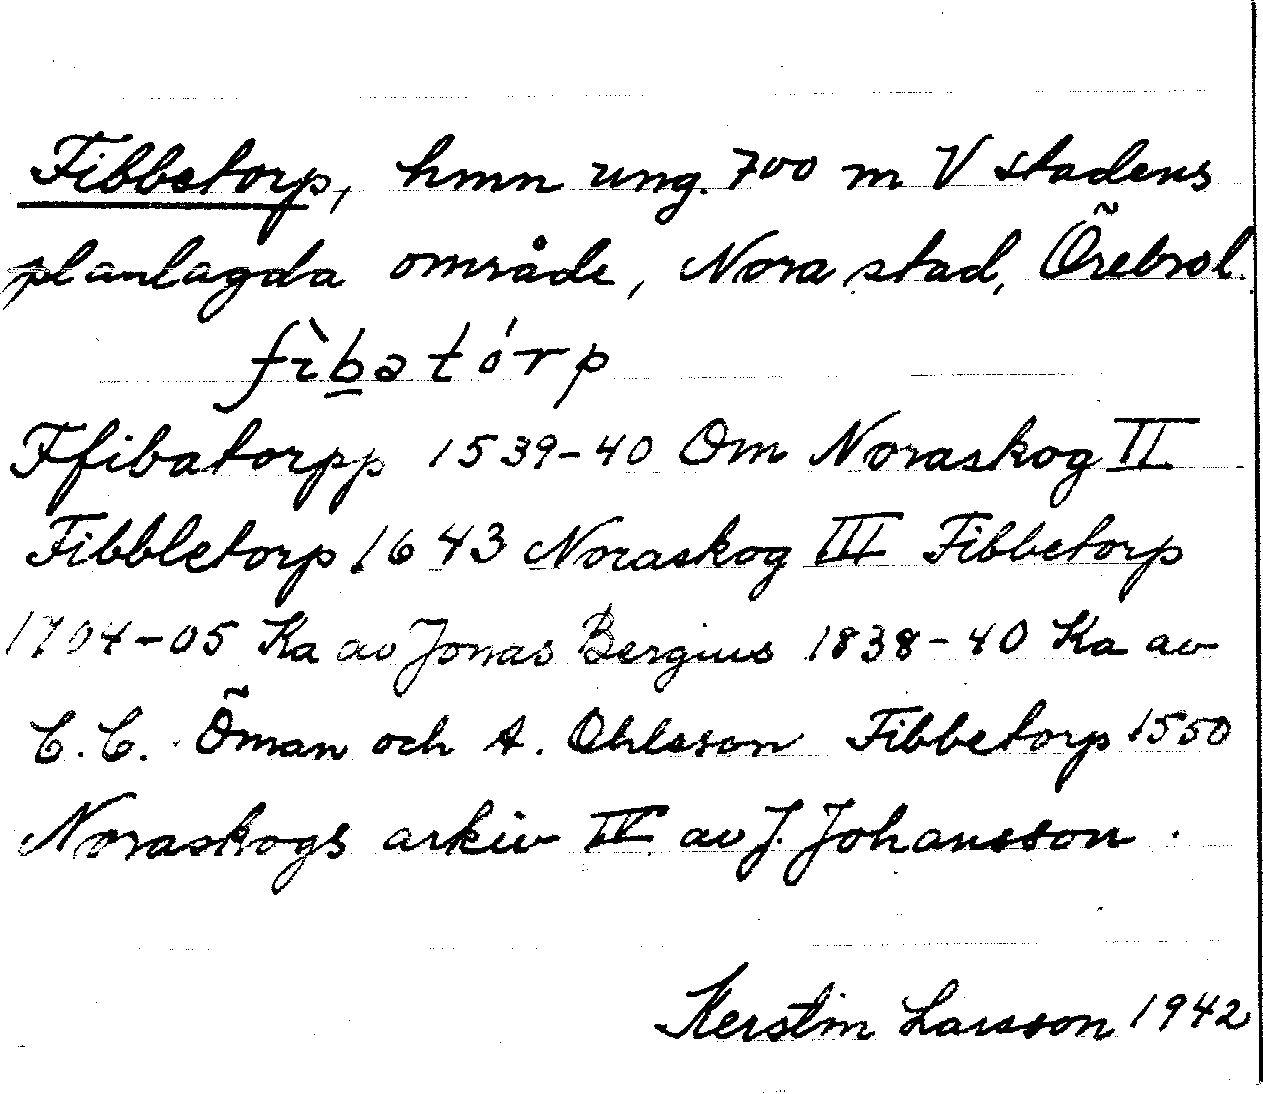 Fibbetorp, hmn ung. 700 m V stadens
planlagda område, Nora stad, Örebrol.
fìbatórp
Ffibatorpp 1539-40 Om Noraskog II
Fibbletorp 1643 Noraskog III Fibbetorp
1704-05 Ka av Jonas Bergius 1838-40 Ka av
C.C. Öman och A. Ohlsson Fibbetorp 1550
Noraskogs arkiv IV av J. Johansson.
Kerstin Larsson 1942